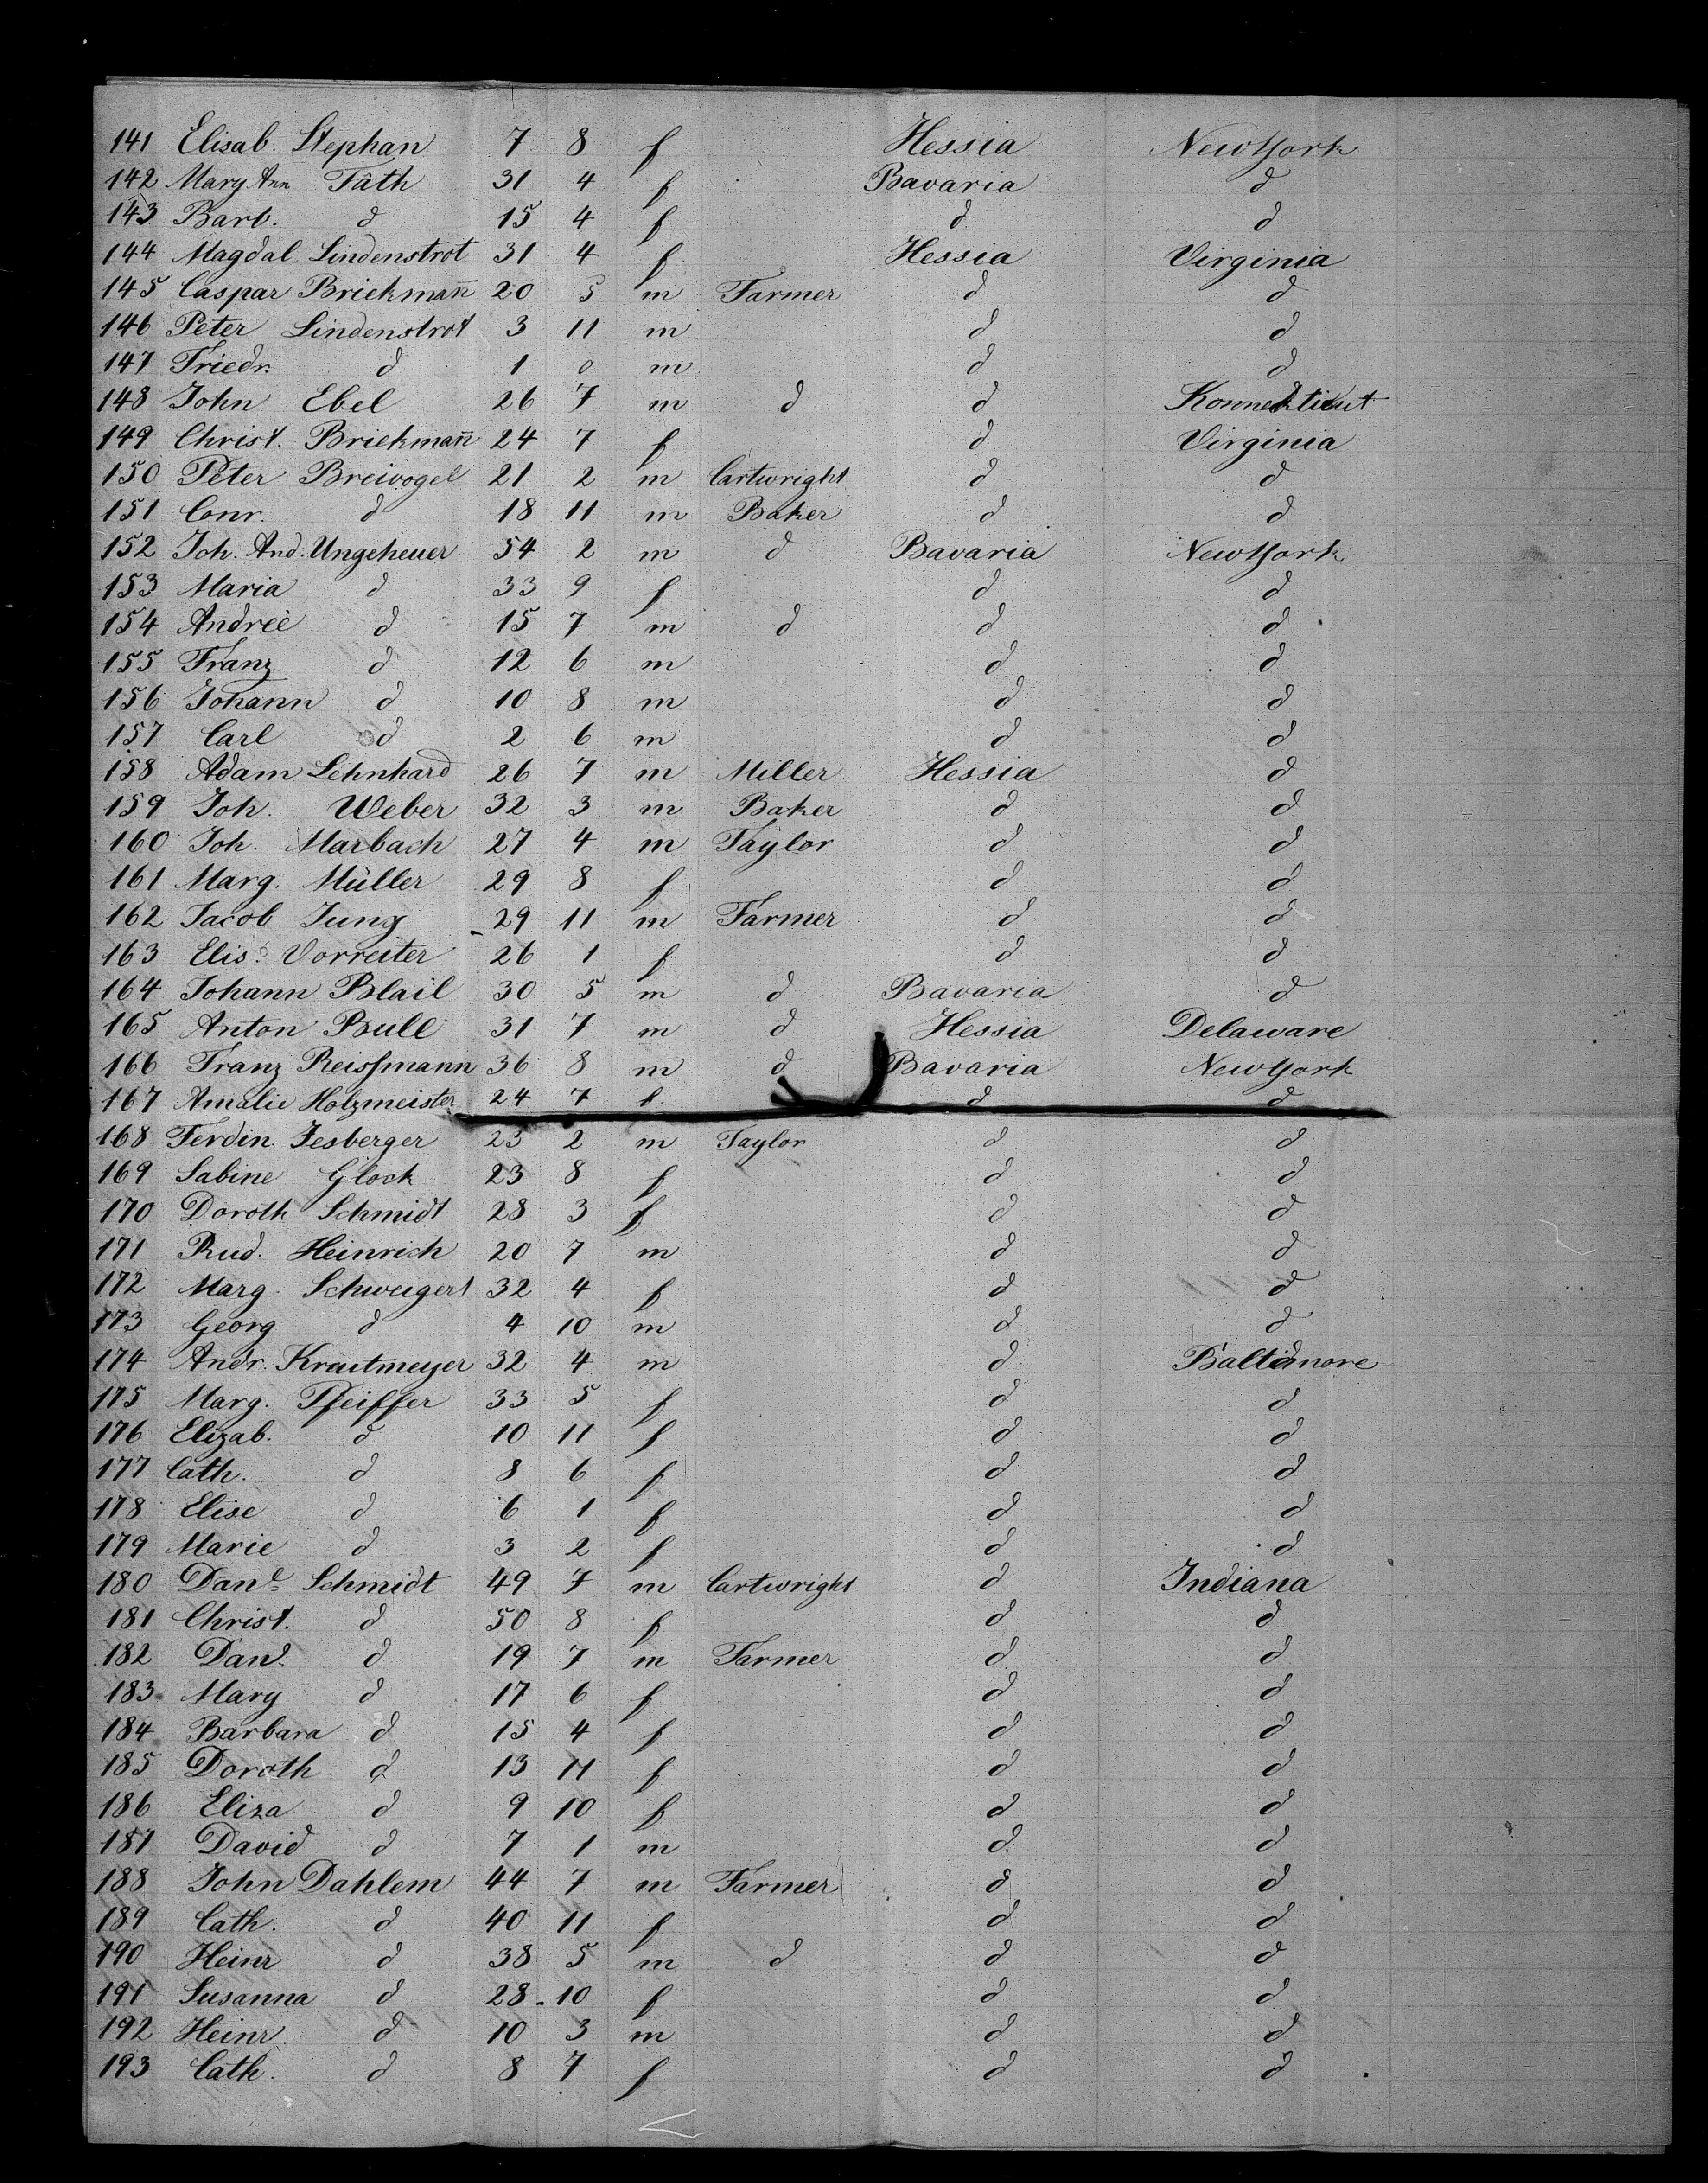 141 Elisab. Stephan 7 8 f Hessia NewYork
142 Mary Ann Fäth 31 4 f Bavaria d
143 Barb. d 15 4 f d d
144 Magdal. Lindenstrot 31 4 f Hessia Virginia
145 Caspar Briekmañ 20 5 m Farmer d d
146 Peter Lindenstrot 3 11 m d d
147 Friedr. d 1 0 m d d
148 John Ebel 26 7 m d d Konnektikut
149 Christ. Briekmañ 24 7 f d Virginia
150 Peter Breivogel 21 2 m Cartwright d d
151 Conr. d 18 11 m Baker d d
152 Joh. And. Ungeheuer 54 2 m d Bavaria NewYork
153 Maria d 33 9 f d d
154 Andreè d 15 7 m d d d
155 Franz d 12 6 m d d
156 Johann d 10 8 m d d
157 Carl d 2 6 m d d
158 Adam Lehnhard 26 7 m Miller Hessia d
159 Joh. Weber 32 3 m Baker d d
160 Joh. Marbach 27 4 m Taylor d d
161 Marg. Müller 29 8 f d d
162 Jacob Jung 29 11 m Farmer d d
163 Elis. Vorreiter 26 1 f d d
164 Johann Blail 30 5 m d Bavaria d
165 Anton Bull 31 7 m d Hessia Delaware
166 Franz Reissmann 36 8 m d Bavaria NewYork
167 Amalie Holzmeister 24 7 f d d
168 Ferdin. Jesberger 23 2 m Taylor d d
169 Sabine Glock 23 8 f d d
170 Doroth Schmidt 28 3 f d d
171 Rud. Heinrich 20 7 m d d
172 Marg. Schweigert 32 4 f d d
173 Georg d 4 10 m d d
174 Andr. Krautmeyer 32 4 m d Baltimore
175 Marg. Pfeiffer 33 5 f d d
176 Elizab. d 10 11 f d d
177 Cath. d 8 6 f d d
178 Elise d 6 1 f d d
179 Marie d 3 2 f d d
180 Danl. Schmidt 49 7 m Cartwright d Indiana
181 Christ. d 50 8 f d d
182 Danl. d 19 7 m Farmer d d
183 Mary d 17 6 f d d
184 Barbara d 15 4 f d d
185 Doroth d 13 11 f d d
186 Eliza d 9 10 f d d
187 David d 7 1 m d d
188 John Dahlem 44 7 m Farmer d d
189 Cath. d 40 11 f d d
190 Heinr d 38 5 m d d d
191 Susanna d 28 10 f d d
192 Heinr. d 10 3 m d d
193 Cath. d 8 7 f d d